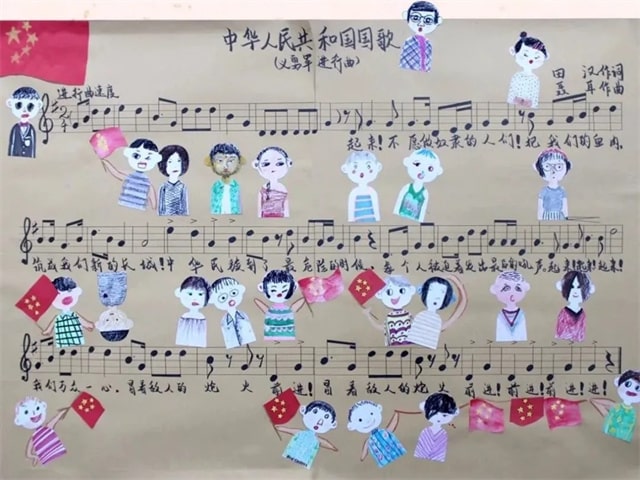 中华人民共和国国歌
(义勇军进行曲)
田 汉作词
聂 耳作曲
进行曲速度
2/4
起来!不愿做奴隶的人们!把我们的血肉,
筑成我们新的长城!中华民族到了最危险的时候,每个人被迫着发出最后的吼声。起来!起来!起来!
我们万众一心,冒着敌人的炮火前进!冒着敌人的炮火前进!前进!前进!进!